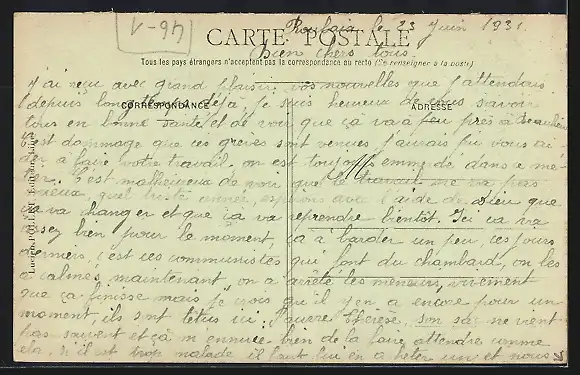 V-46
Roubaix le 23 Juin 1931
CARTE POSTALE
Bien chers tous
Tous les pays étrangers n'acceptent pas la correspondance au recto (Se renseigner à la poste)
J'ai reçu avec grand plaisir vos nouvelles que j'attendais
depuis longtemps déjà, je suis heureux de vous savoir
CORRESPONDANCE
ADRESSE
tous en bonne santé et de voir que ça va à peu près à
C'est dommage que ces grèves sont venues j'aurais pu vous ai-
der à faire votre travail, on est toujours emmerdé dans ce mé-
tier. C'est malheureux de voir que le travail ne va pas
mieux quel triste année, espérons avec l'aide de Dieu que
ça va changer et que ça va reprendre bientôt. Ici ça va
assez bien pour le moment, ça à barder un peu, ces jours
derniers, c'est ces communistes qui font du chambard, on les
a calmés maintenant, on a arrêté les meneurs, vivement
que ça finisse mais je crois qu'il y en a encore pour un
moment, ils sont têtus ici. Pauvre Thérèse, son sac ne vient
pas souvent et ça m'ennuie bien de la faire attendre comme
cela, s'il est trop malade il faut lui en acheter un et nous